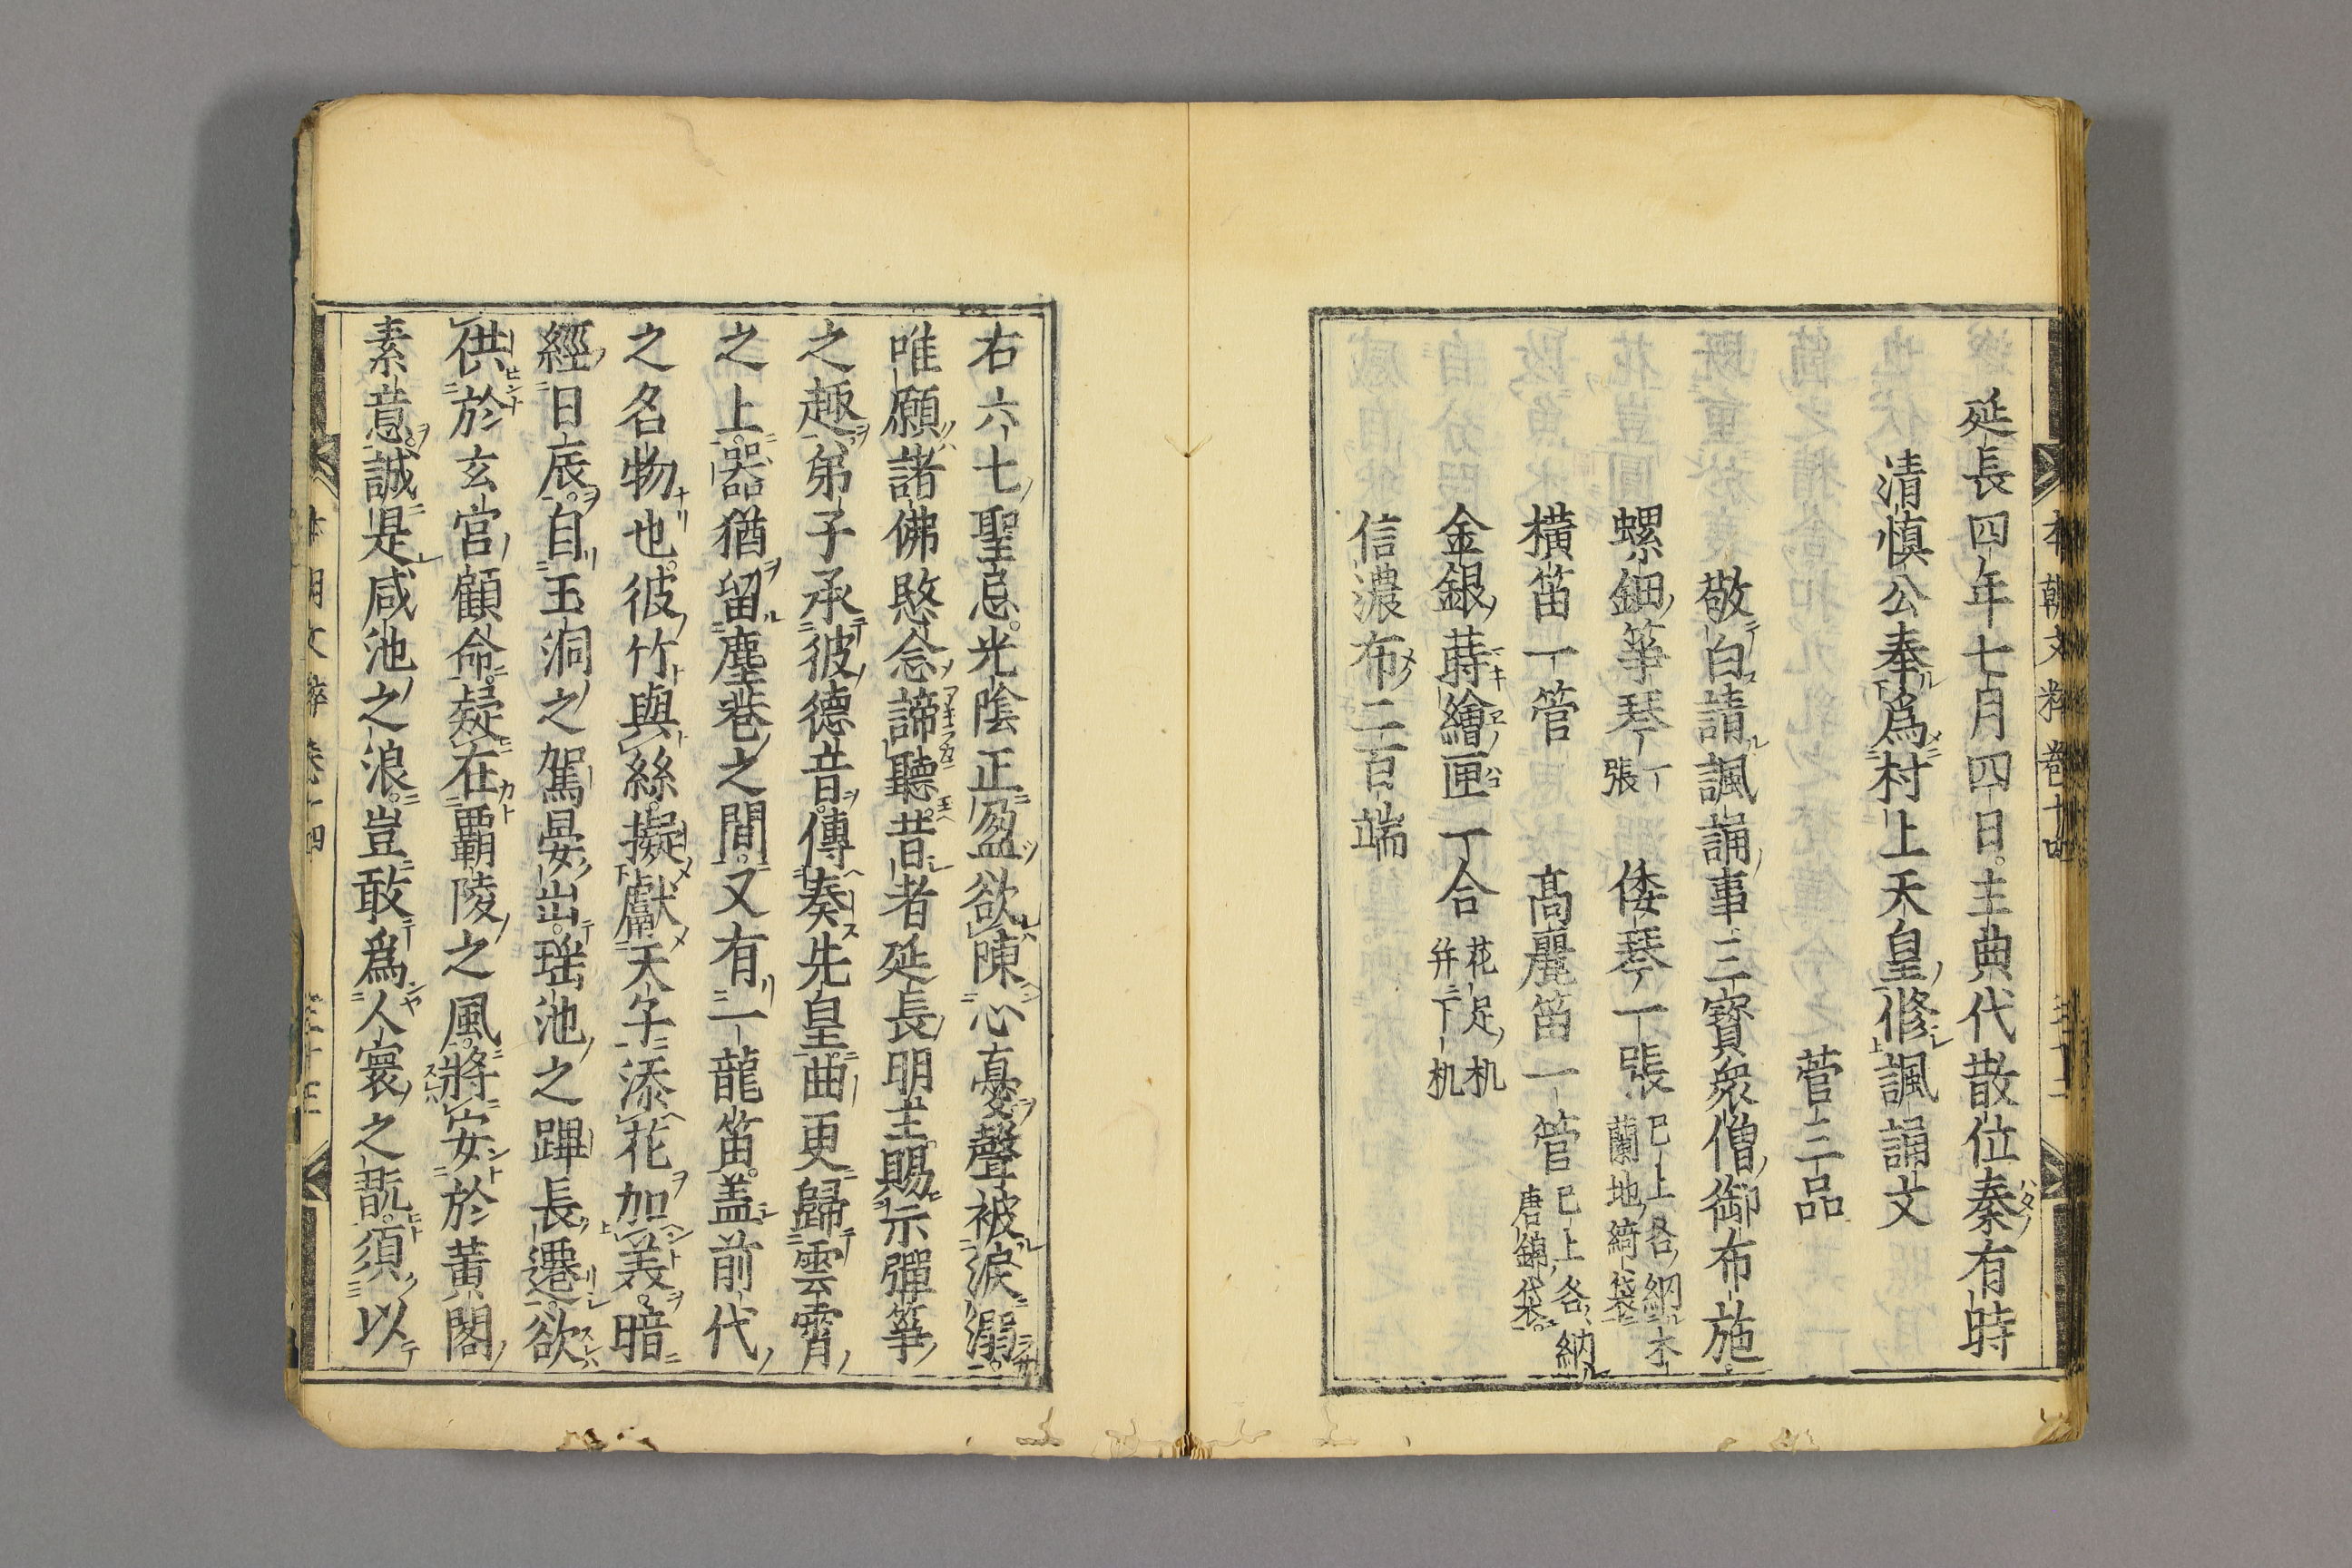 延長四年七月四日主典代散位秦有時
清慎公奉爲村上天皇修諷誦文
菅三品
敬白請諷誦事三寶衆僧御布施
螺鈿箏琴一張 倭琴一張 已上各納木蘭地綺袋
横笛一管 髙麗笛一管 已上各納唐錦袋
金銀蒔繪匣一合 花足机并下机
信濃布二百端
右六七聖忌光陰正盈欲陳心憂聲被淚溺
唯願諸佛愍念諦聽昔者延長明主賜示彈箏
之趣弟子承彼德音傳奏先皇曲更歸雲霄
之上器猶留塵巷之間又有一龍笛盖前代
之名物也彼竹與絲擬獻天子添花加美暗
經日辰自玉洞之駕晏出瑶池之蹕長遷欲
供於玄宮顧命疑在覇陵之風將安於黃閣
素意誠是咸池之浪豈敢爲人寰之翫須以
本朝文粹卷十四